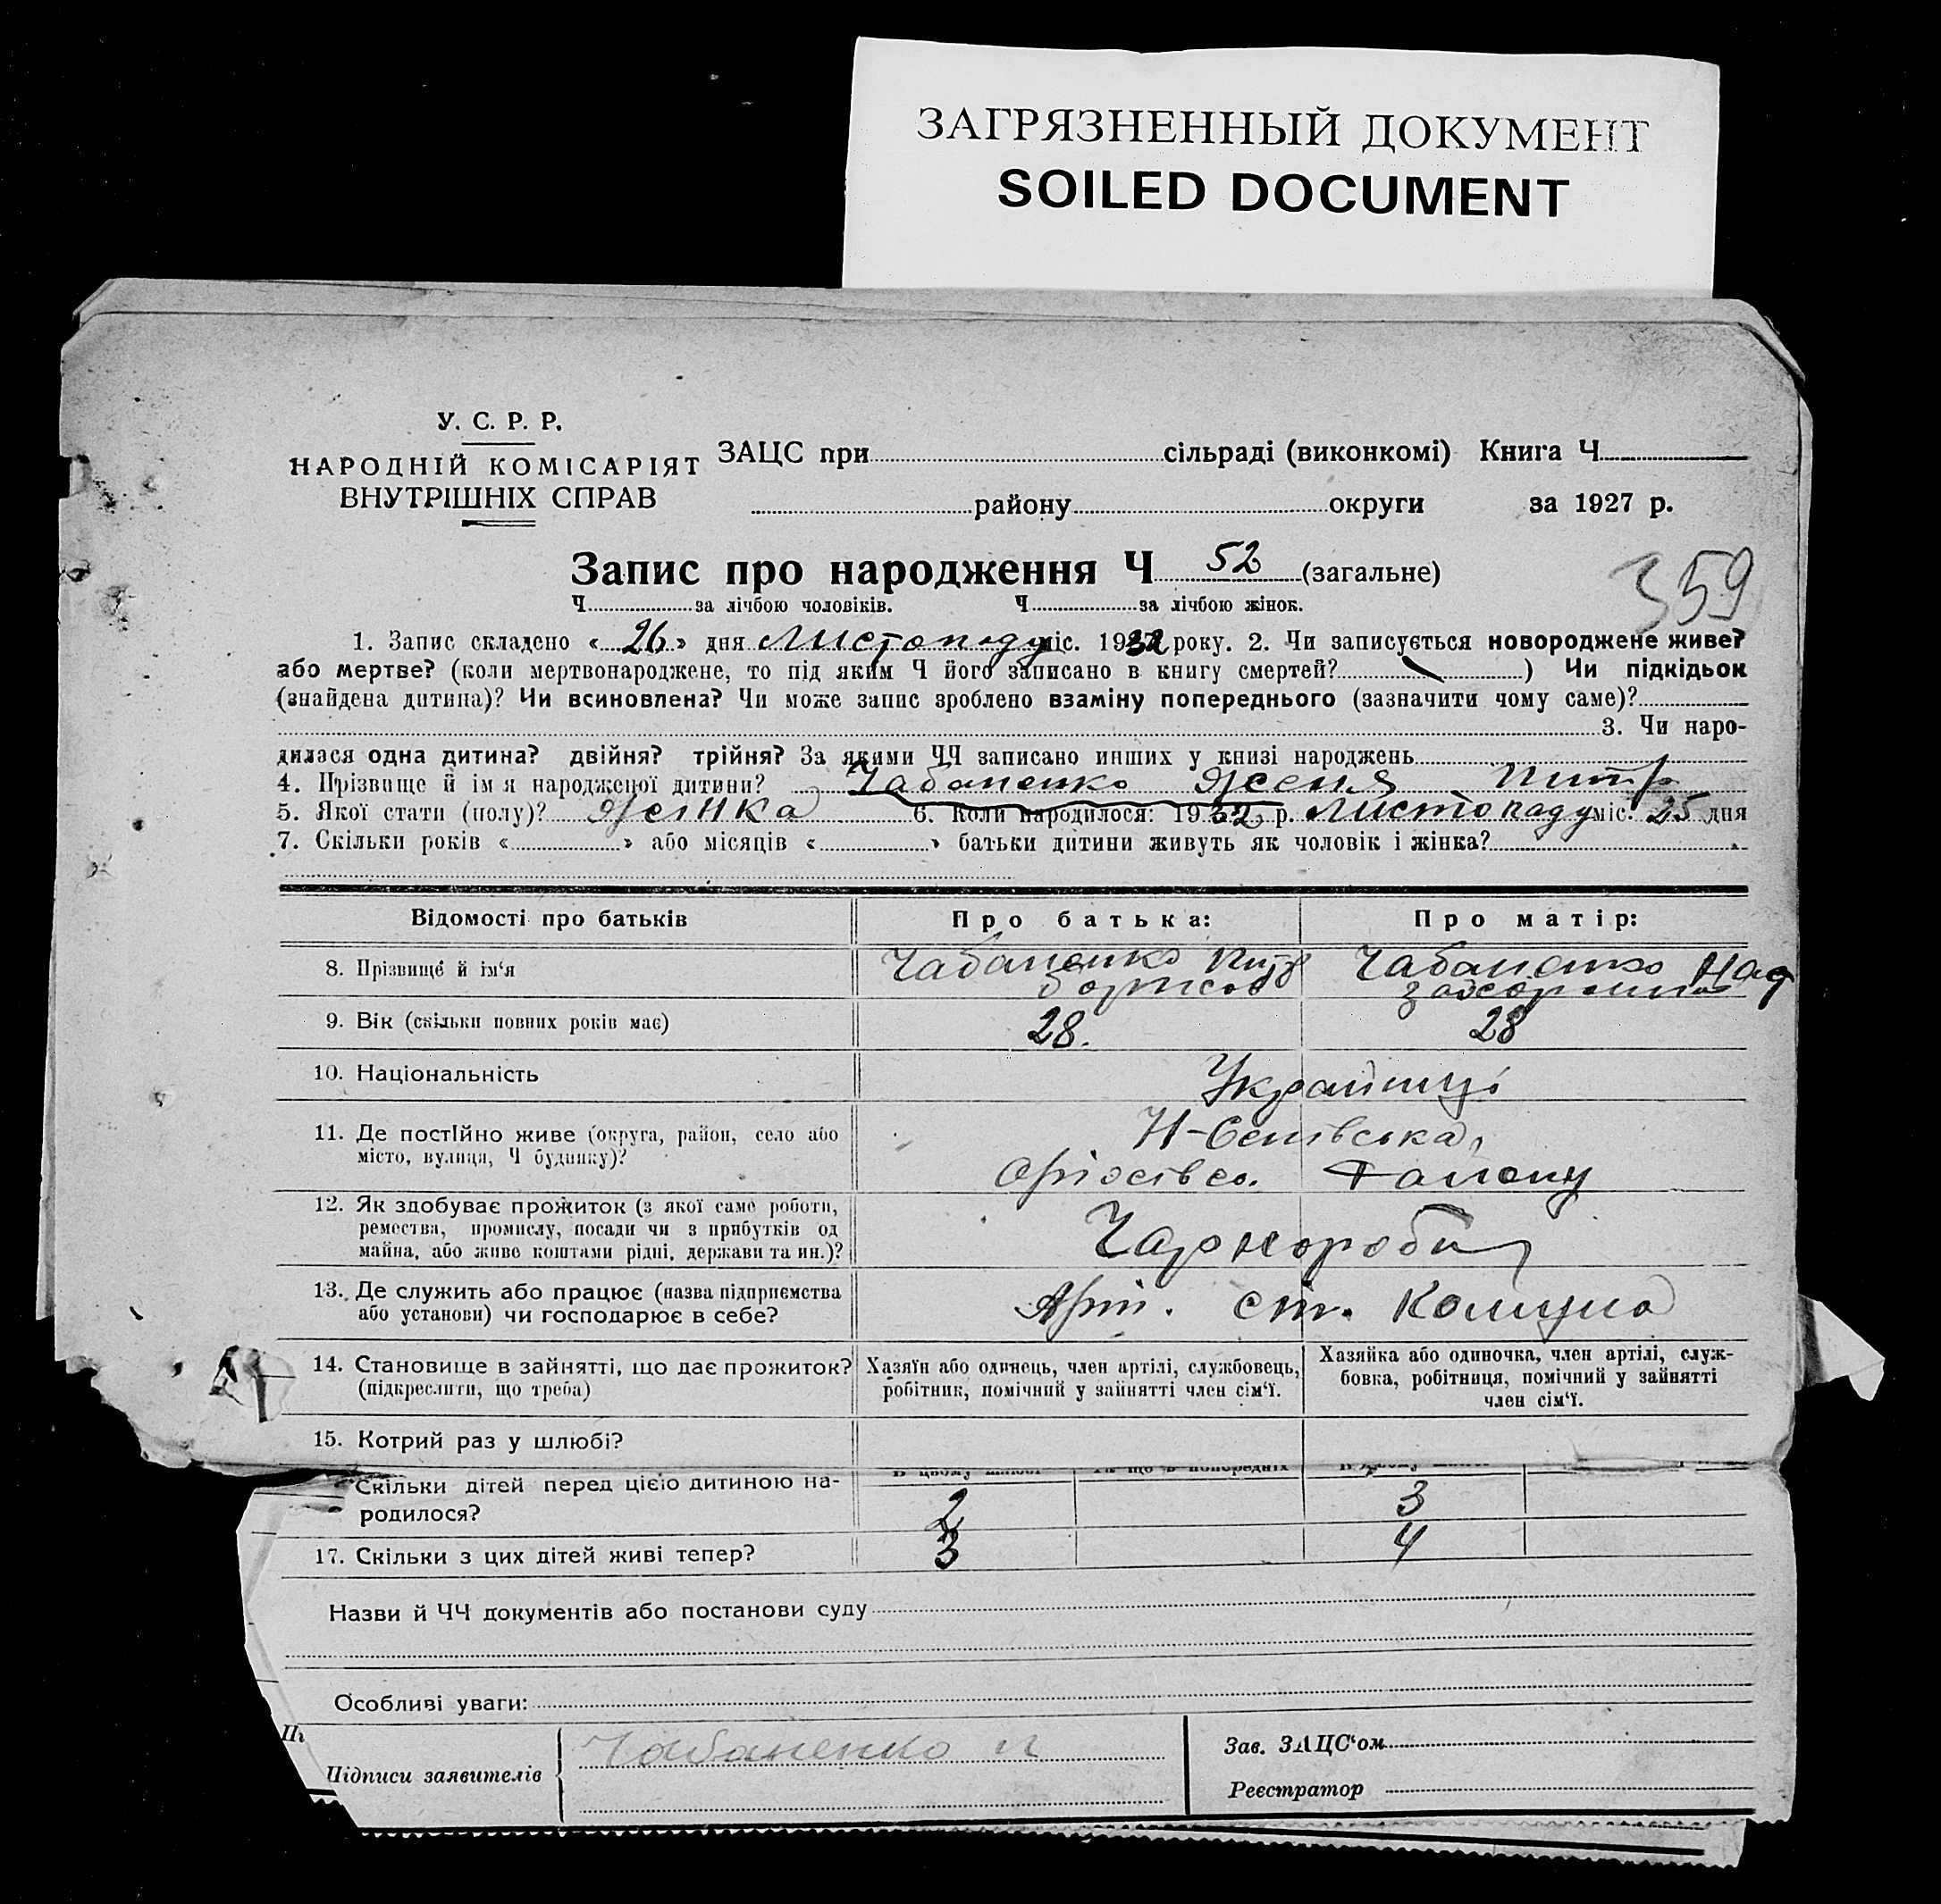 ЗАГРЯЗНЕННЫЙ ДОКУМЕНТ
SOILED DOCUMENT
У. С. Р. Р.
НАРОДНІЙ КОМІСАРІЯТ
ВНУТРІШНІХ СПРАВ
ЗАЦС при сільраді (виконкомі) Книга Ч
району округи за 1927 р.
Запис про народження Ч 52 (загальне)
359
Ч за лічбою чоловіків. Ч за лічбою жінок.
1. Запис складено « 26 » дня Листопаду міс. 1932 року. 2. Чи записується новороджене живе?
або мертве? (коли мертвонароджене, то під яким Ч його записано в книгу смертей? ) Чи підкідьок
(знайдена дитина)? Чи всиновлена? Чи може запис зроблено взаміну попереднього (зазначити чому саме)?
3. Чи наро-
дилася одна дитина? двійня? трійня? За якими ЧЧ записано инших у книзі народжень
4. Прізвище й ім'я народженої дитини? Чабаненко Женя Питр
5. Якої стати (полу)? Жінка 6. Коли народилося: 1932 р. Листопаду міс. 25 дня
7. Скільки років « » або місяців « » батьки дитини живуть як чоловік і жінка?
Відомості про батьків Про батька: Про матір:
8. Прізвище й ім'я Чабаненко Питр Чабаненко Над
Борисов
9. Вік (скільки повних років має) 28. 28
10. Національність Українці
11. Де постІйно живе (округа, район, село або
місто, вулиця, Ч будинку)?
району
12. Як здобуває прожиток (з якої саме роботи,
ремества, промислу, посади чи з прибутків од
майна, або живе коштами рідні, держави та ин.)?
13. Де служить або працює (назва підприємства
або установи) чи господарює в себе?
Арт. ст. Комуна
14. Становище в зайнятті, що дає прожиток?
(підкреслити, що треба)
Хазяїн або одинець, член артілі, службовець,
робітник, помічний у зайнятті член сім'ї.
Хазяйка або одиночка, член артілі, служ-
бовка, робітниця, помічний у зайнятті
член сім'ї.
15. Котрий раз у шлюбі?
Скільки дітей перед цією дитиною на-
родилося?
2 3
17. Скільки з цих дітей живі тепер? 3 4
Назви й ЧЧ документів або постанови суду
Особливі уваги:
Підписи заявителів
Чабаненко п
Зав. ЗАЦС'ом
Реєстратор